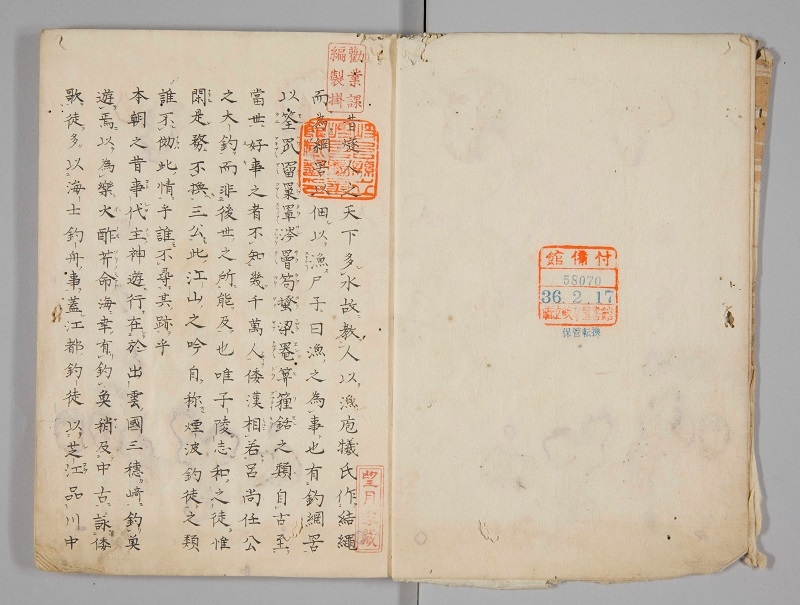 付備館
58070
36.2.17
保管転換
勸業課
編製掛
望月
藏
昔燧人之天下多水故教人以漁庖犧氏作結繩
而為網罟以佃以漁尸子曰漁之為事也有釣網罟
以筌罛罶罺罩涔罾笱梁罨箄銛之類自古至
當世好事之者不知幾千萬人倭漢相若呂尚任公
之大釣而非後世之所能及也唯子陵志和之徒惟
閑是務不換三公此江山之吟自称煙波釣徒之類
誰不傚此情乎誰不尋其跡乎
本朝之昔事代主神遊行在於出雲國三穗崎釣魚
遊焉以為樂火酢芹命海幸有釣魚稍及中古詠倭
歌徒多以海士釣舟事蓋江都釣徒以芝江品川中